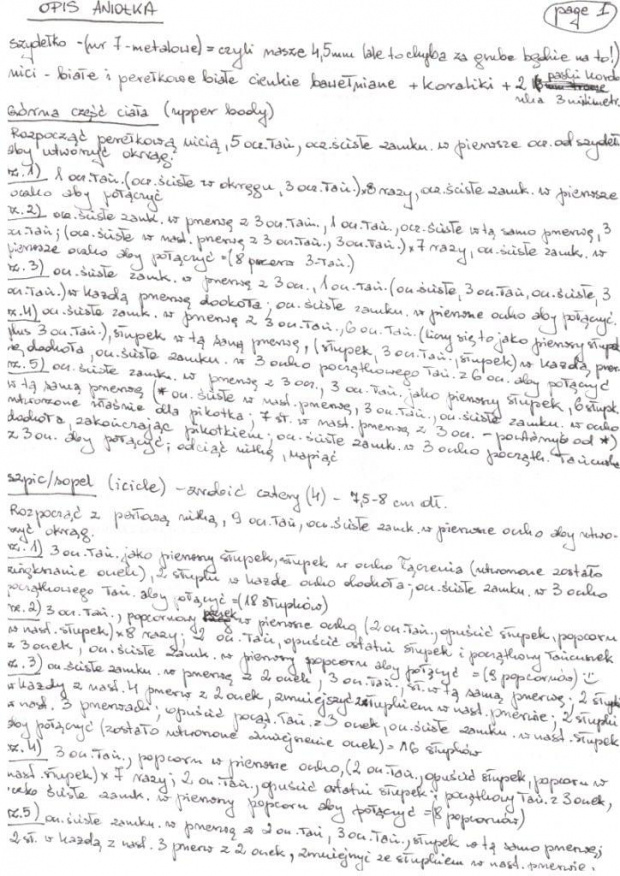 OPIS ANIOŁKA
page 1
szydełko - (nr 7 - metalowe) = czyli nasze 4,5mm (ale to chyba za grube będzie na to!)
nici - białe i perełkowe białe cienkie bawełniane + koraliki + 2
nika 3 milimetr.
Górna część ciała (upper body)
Rozpocząć perełkową nicią, 5 ocz. łań, ocz. ściste zamk. w pierwsze ocz. od szydeł
aby utworzyć okrąg.
rz. 1) 1 ocz. łań. (ocz. ściste w okręgu, 3 ocz. łań.) x 8 razy, ocz. ściste zamk. w pierwsze
oczko aby połączyć
rz. 2) ocz. ściste zamk. w przerwę z 3 ocz. łań., 1 ocz. łań., ocz. ściste w tą samą przerwę, 3
ocz. łań; (ocz. ściste w nast. przerwę z 3 ocz. łań., 3 ocz. łań.) x 7 razy, ocz. ściste zamk. w
pierwsze oczko aby połączyć = (8 przerw 3-łań.)
rz. 3) ocz. ściste zamk. w przerwę z 3 ocz., 1 ocz. łań. (ocz. ściste, 3 ocz. łań, ocz. ściste, 3
ocz. łań.) w każdą przerwę dookoła; ocz. ściste zamk. w pierwsze oczko aby połączyć.
rz. 4) ocz. ściste zamk. w przerwę z 3 ocz. łań., 6 ocz. łań. (liczy się to jako pierwszy słupek
plus 3 ocz. łań.), słupek w tą samą przerwę, (słupek, 3 ocz. łań; słupek) w każdą przer
wę dookoła, ocz. ściste zamk. w 3 oczko początkowego łań. z 6 ocz. aby połączyć
rz. 5) ocz. ściste zamk. w przerwę z 3 ocz., 3 ocz. łań. jako pierwszy słupek, 6 słupk.
w tą samą przerwę (* ocz. ściste w nast. przerwę, 3 ocz. łań., ocz. ściste zamk. w oczko
utworzone właśnie dla pikotka; 7 st. w nast. przerwę z 3 ocz. - powtórzyć od *)
dookoła, zakończając pikotkiem; ocz. ściste zamk. w 3 oczko początk. łańcuszka
z 3 ocz. aby połączyć; odciąć nitkę, napiąć
szpic/sopel (icicle) - zrobić cztery (4) - 7,5-8 cm dł.
Rozpocząć z perłową nitką, 9 ocz. łań, ocz. ściste zamk. w pierwsze oczko aby utwo-
rzyć okrąg.
rz. 1) 3 ocz. łań. jako pierwszy słupek, słupek w oczko łączenia (utworzone zostało
zwiększenie oczek), 2 słupki w każde oczko dookoła; ocz. ściste zamk. w 3 oczko
początkowego łań. aby połączyć = (18 słupków)
rz. 2) 3 ocz. łań., popcornowy w pierwsze oczko (2 ocz. łań., opuścić słupek, popcorn
w nast. słupek) x 8 razy; 2 ocz. łań, opuścić ostatni słupek i początkowy łańcuszek
z 3 oczek, ocz. ściste zamk. w pierwszy popcorn aby połączyć = (9 popcornów)
rz. 3) ocz. ściste zamk. w przerwę z 2 oczek, 3 ocz. łań., st. w tą samą przerwę, 2 słupki
w każdy z nast. 4 przerw z 2 oczek, zmniejszyć słupkiem w nast. przerwie; 2 słupki
w nast. 3 przerwach; opuścić począt. łań. z 3 oczek, ocz. ściste zamk. w nast. słupek
aby połączyć (zostało utworzone zmniejszenie oczek) = 16 słupków
rz. 4) 3 ocz. łań., popcorn w pierwsze oczko, (2 ocz. łań., opuścić słupek, popcorn w
nast. słupek) x 7 razy; 2 ocz. łań., opuścić ostatni słupek i początkowy łań. z 3 oczek,
oczko ściste zamk. w pierwszy popcorn aby połączyć = (8 popcornów)
rz. 5) ocz. ściste zamk. w przerwę z 2 ocz. łań, 3 ocz. łań., słupek w tą samą przerwę;
2 st. w każdą z nast. 3 przerw z 2 oczek, zmniejszyć ze słupkiem w nast. przerwie.